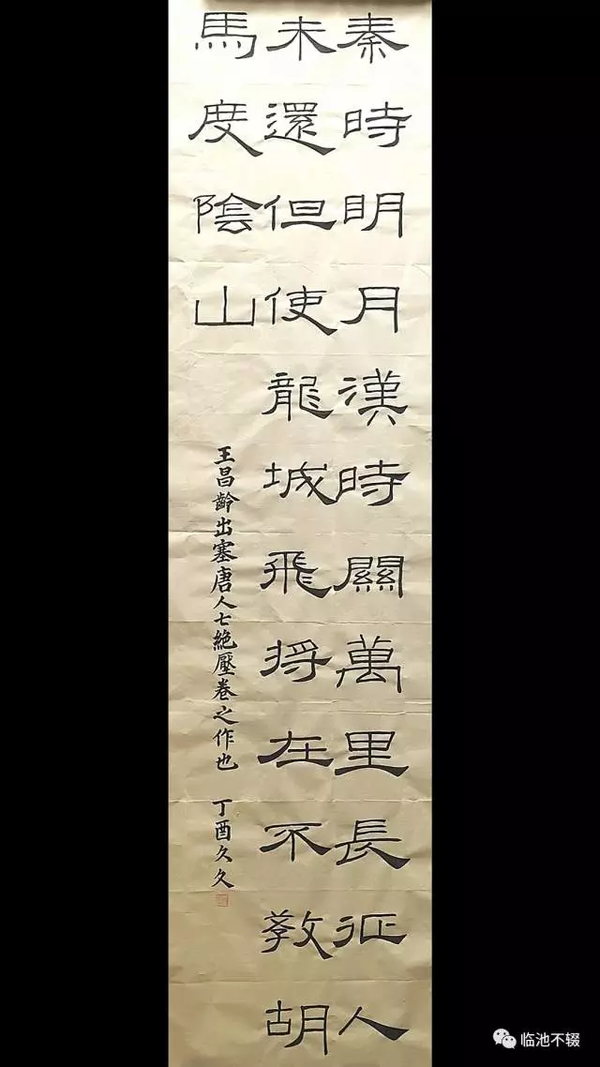 秦時明月漢時關萬里長征人
未還但使龍城飛将在不教胡
馬度陰山
王昌齡出塞唐人七絶壓卷之作也 丁酉久久
临池不辍